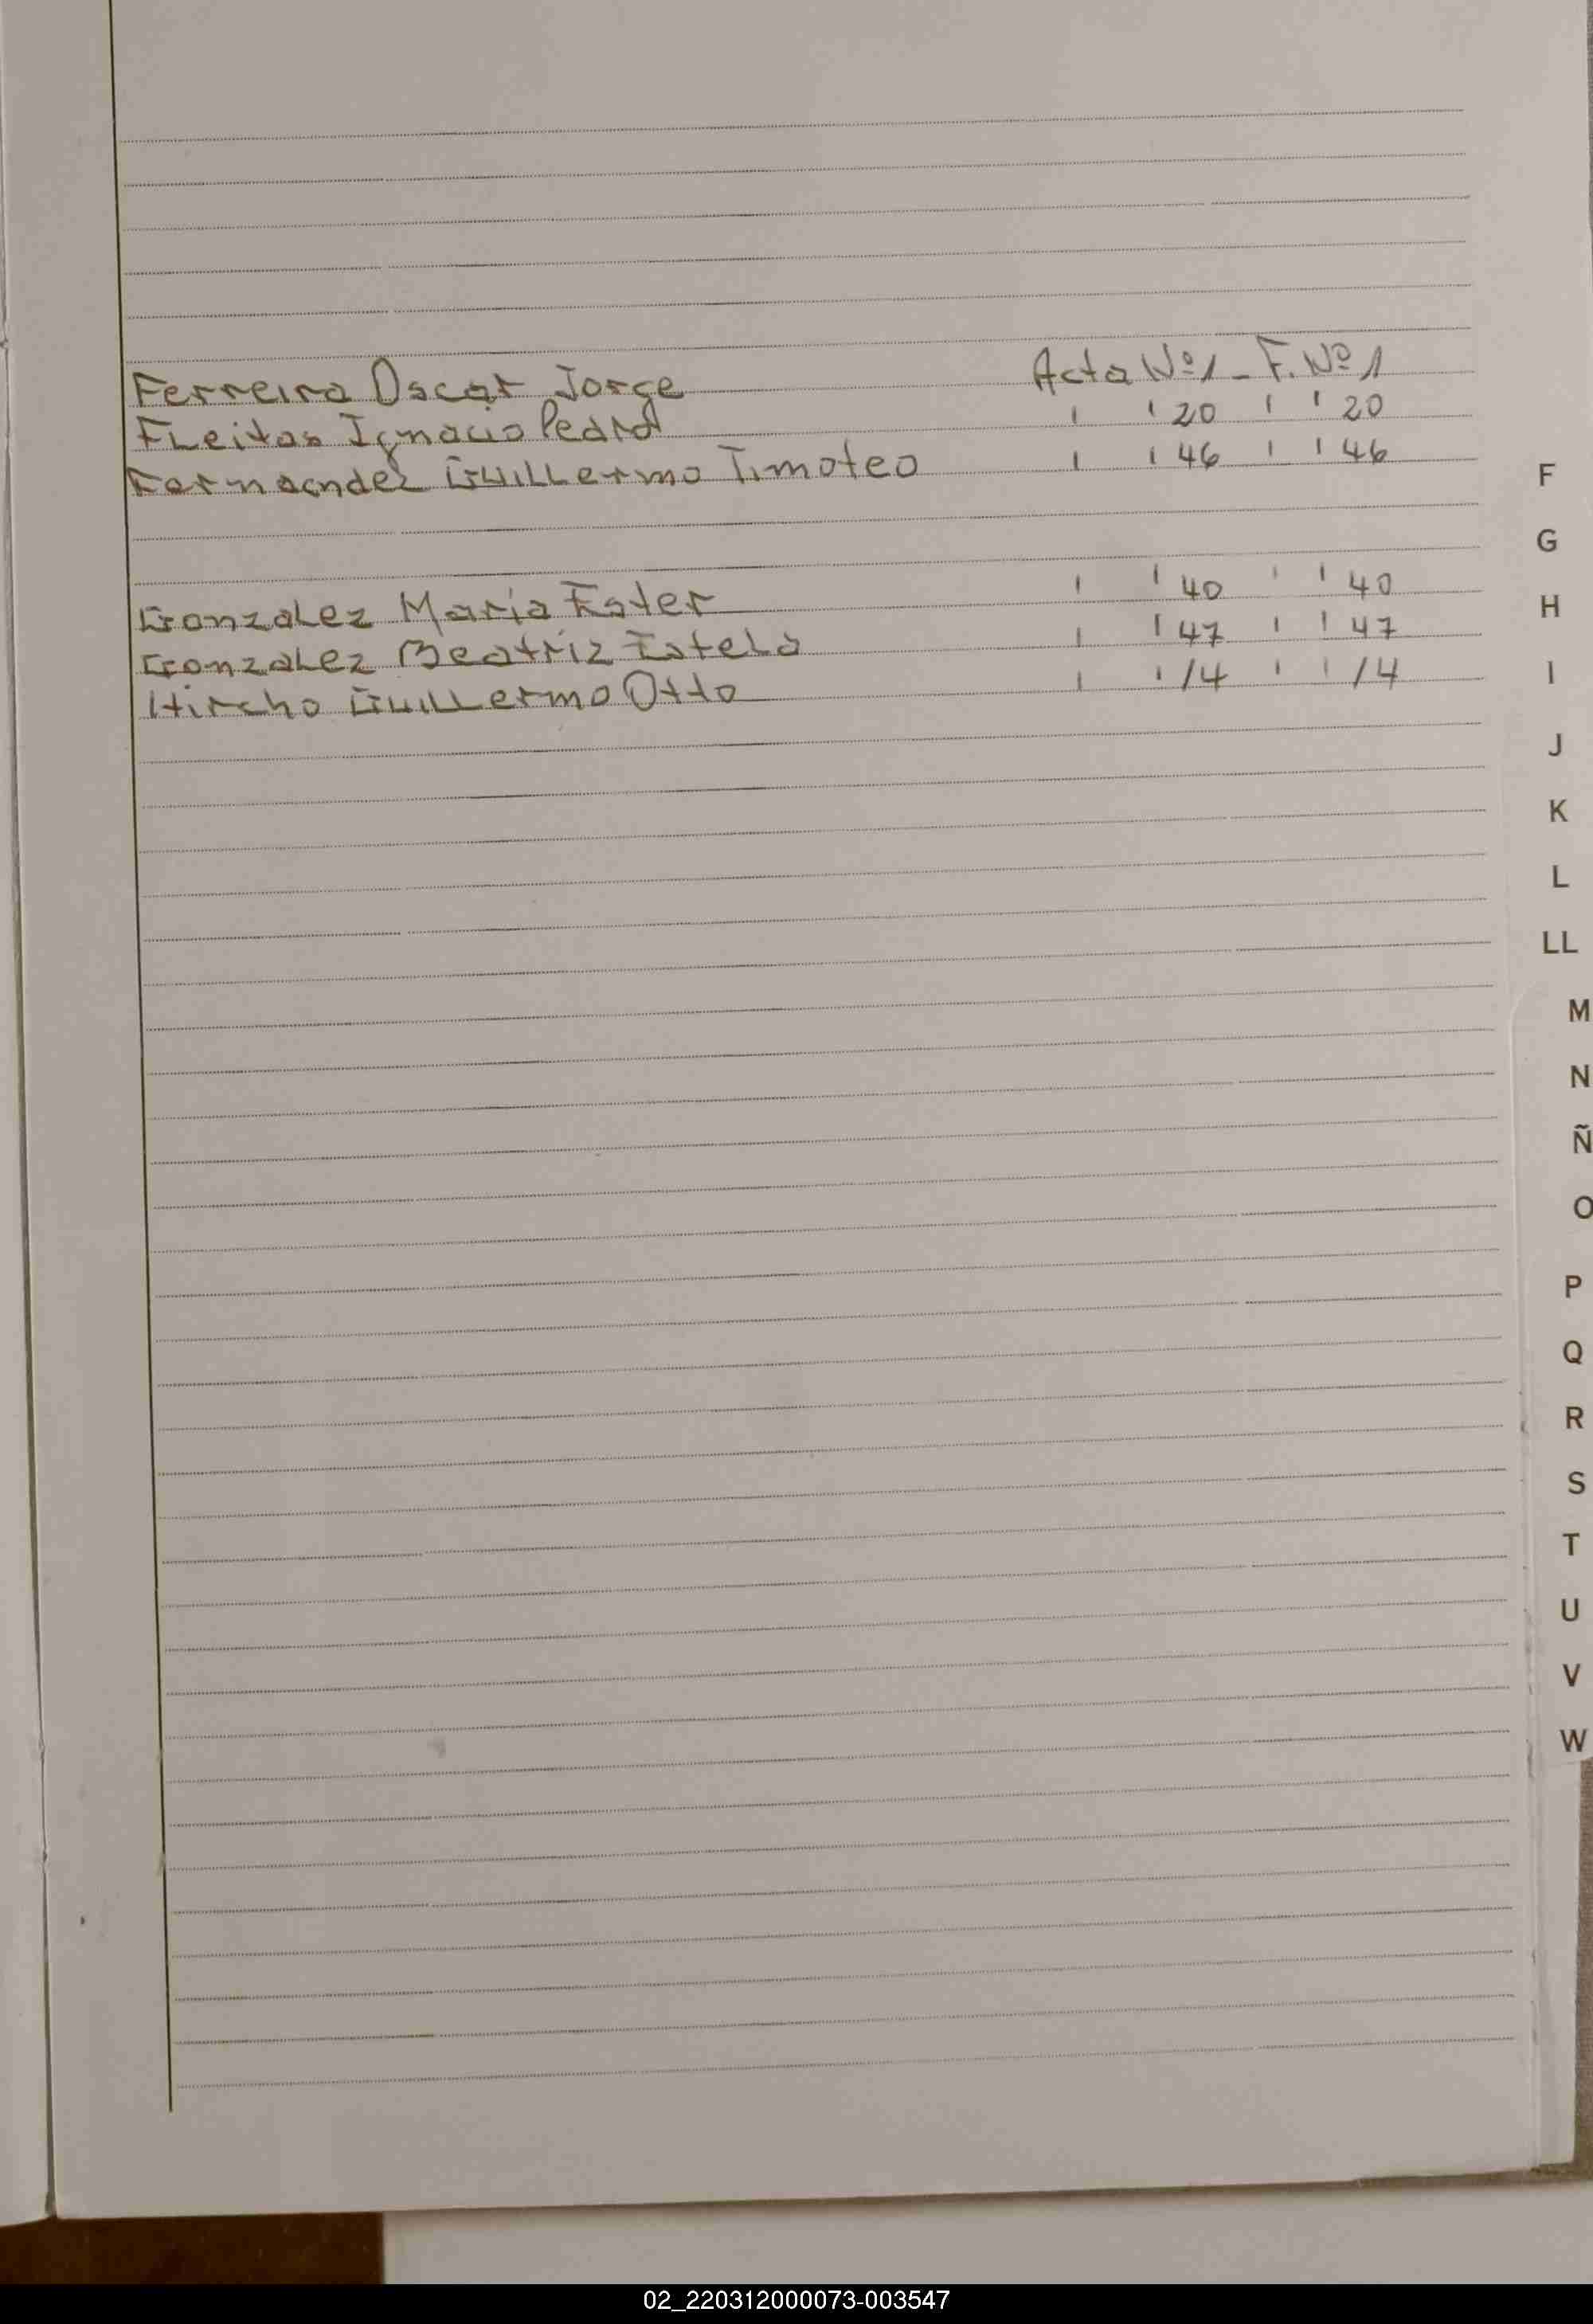 Ferreira Oscar Jorge Acta Nº1 - F. Nº 1
FLeitas Ignacio Pedro ' ' 20 ' ' 20
Fernandez GuiLLermo Timoteo ' ' 46 ' ' 46
GonzaLez Maria Ester ' ' 40 ' ' 40
GonzaLez Beatriz EsteLa ' ' 47 ' ' 47
GuiLLermo Otto ' ' 14 ' ' 14
F
G
H
I
J
K
L
LL
M
N
Ñ
O
P
Q
R
S
T
U
V
W
02_220312000073-003547